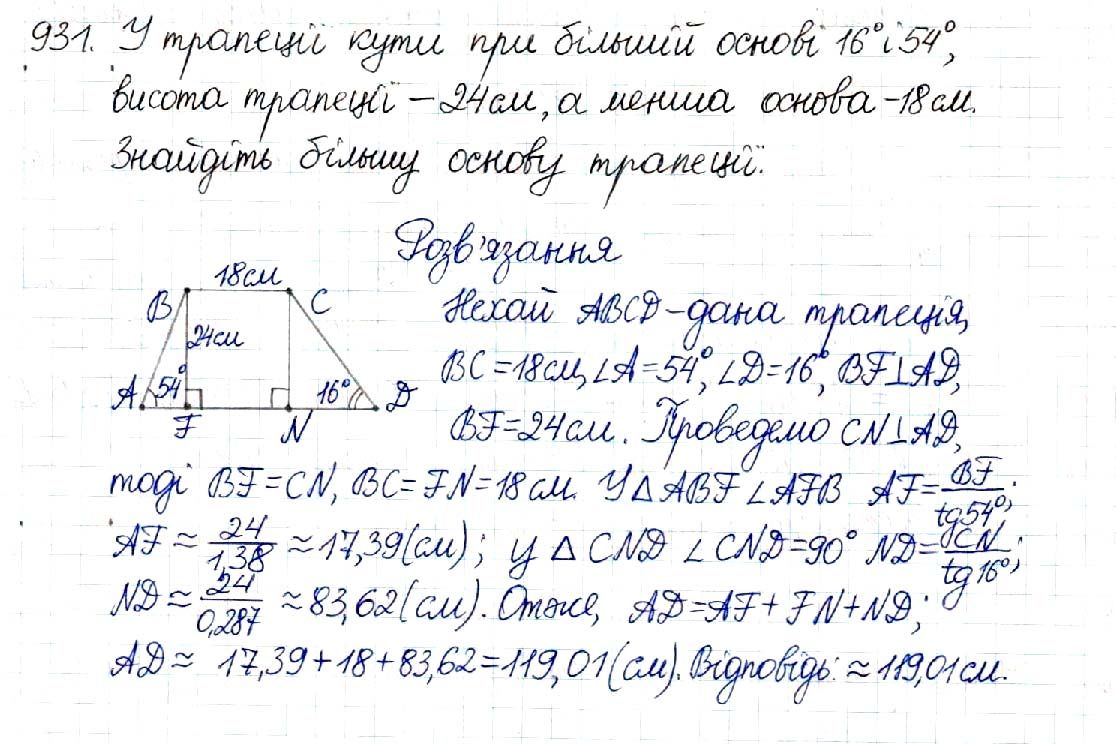 931. У трапеції кути при більшій основі 16° і 54°,
висота трапеції – 24 см, а менша основа – 18 см.
Знайдіть більшу основу трапеції.
Розв'язання
18 см
B C
24 см
54° 16°
A F N D
Нехай ABCD – дана трапеція,
BC = 18 см, ∠A = 54°, ∠D = 16°, BF⊥AD,
BF = 24 см. Проведемо CN⊥AD,
тоді BF = CN, BC = FN = 18 см. У △ABF ∠AFB AF = BF/tg54°;
AF ≈ 24/1,38 ≈ 17,39 (см); у △CND ∠CND = 90° ND = CN/tg16°;
ND ≈ 24/0,287 ≈ 83,62 (см). Отже, AD = AF + FN + ND;
AD ≈ 17,39 + 18 + 83,62 = 119,01 (см). Відповідь: ≈ 119,01 см.